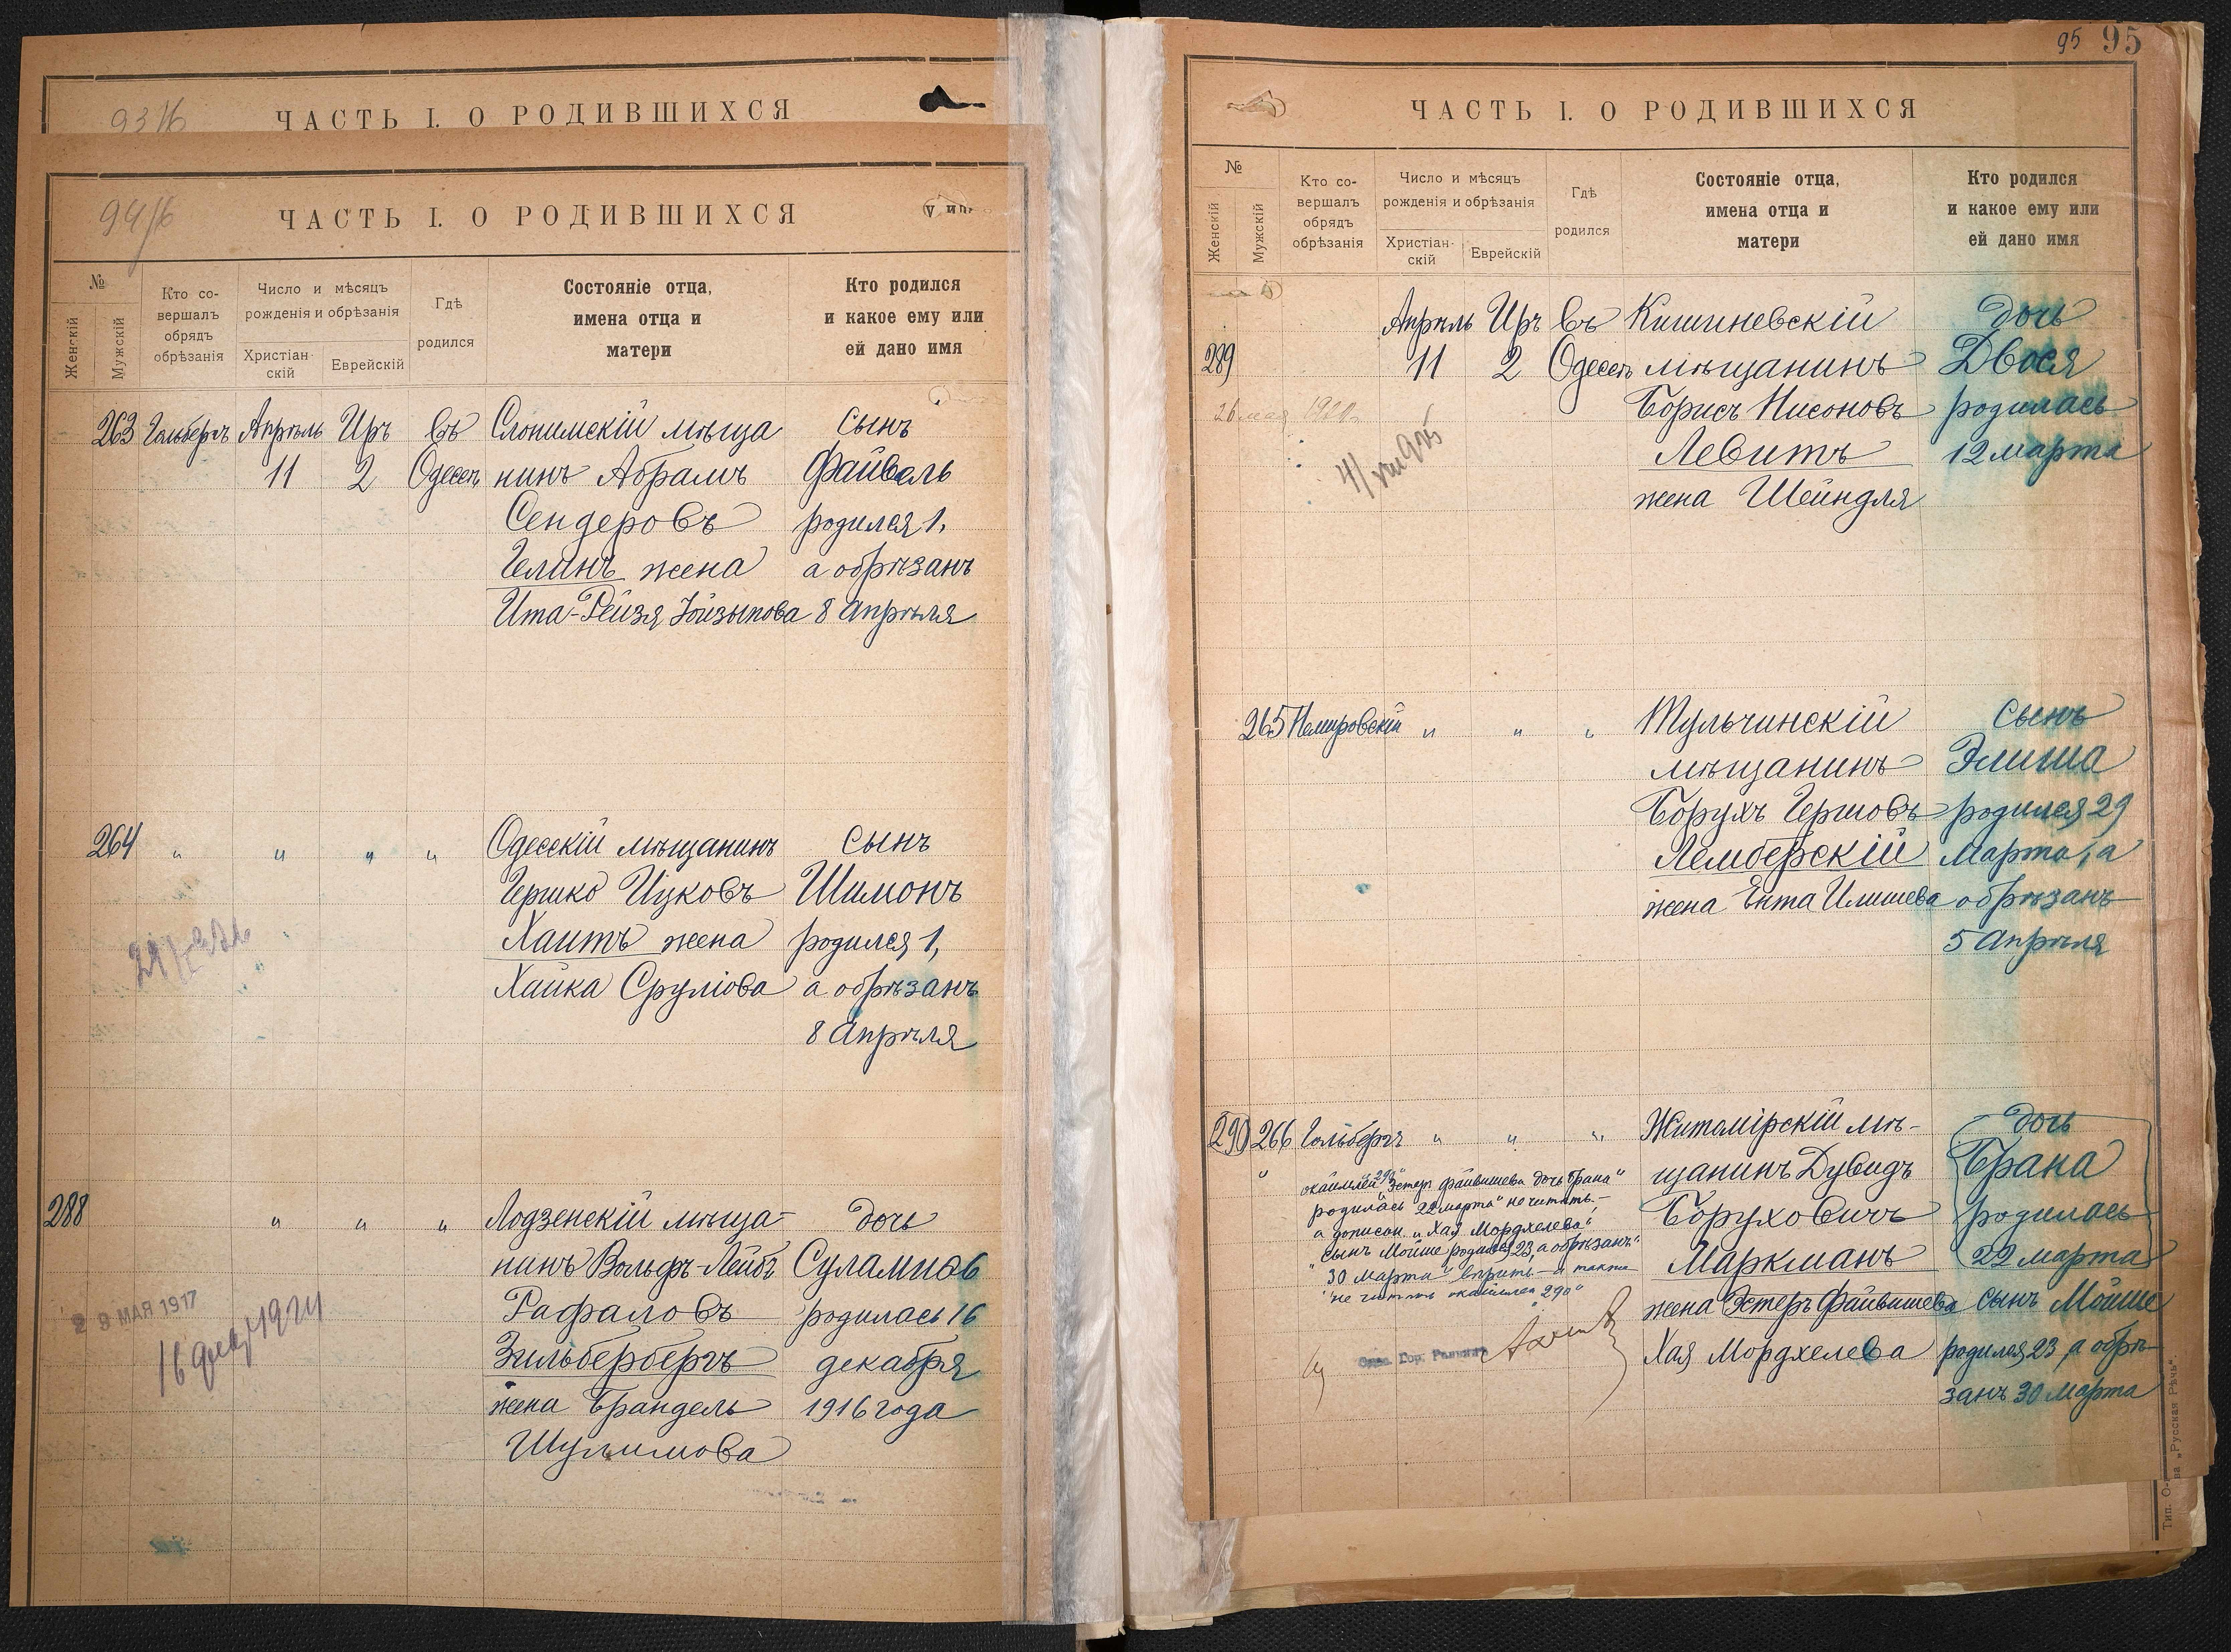 93/16
ЧАСТЬ I. О РОДИВШИХСЯ
94/16
ЧАСТЬ I. О РОДИВШИХСЯ
№
Женскій
Мужскій
Кто со-
вершалъ
обрядъ
обрѣзанія
Число и мѣсяцъ
рожденія и обрѣзанія
Христіан-
скій
Еврейскій
Гдѣ
родился
Состояніе отца,
имена отца и
матери
Кто родился
и какое ему или
ей дано имя
263 Гольбергъ Апрѣль Иръ въ Слонимскій мѣща сынъ
11 2 Одессѣ нинъ Абрамъ Файвель
Сендеровъ родился 1,
Гелинъ жена а обрѣзанъ
Ита-Рейзя 8 Апрѣля
264 " " " " Одесскій мѣщанинъ сынъ
Гершко Ицковъ Шимонъ
Хаитъ жена родился 1,
Хайка Сруліова а обрѣзанъ
8 Апрѣля
288 " " " Лодзенскій мѣща- дочь
нинъ Вольфъ-Лейбъ
Рафаловъ родилась 16
Зильбербергъ декабря
жена Брандель 1916 года
Шулимова
29 МАЯ 1917
1924
95 95
ЧАСТЬ I. О РОДИВШИХСЯ
№
Женскій
Мужскій
Кто со-
вершалъ
обрядъ
обрѣзанія
Число и мѣсяцъ
рожденія и обрѣзанія
Христіан-
скій
Еврейскій
Гдѣ
родился
Состояніе отца,
имена отца и
матери
Кто родился
и какое ему или
ей дано имя
Апрѣль Иръ въ Кишиневскій дочь
289 11 2 Одессѣ мѣщанинъ Двося
26 мая Борисъ Нисоновъ родилась
Левитъ 12 марта
жена Шейндля
265 Немировскій " " " Тульчинскій сынъ
мѣщанинъ Элиша
Борухъ Гершовъ родился 29
Лемберскій Марта, а
жена Ента Илишева обрѣзанъ
5 Апрѣля
290 266 Гольбергъ " " " Житомірскій мѣ- дочь
щанинъ Дувидъ Брана
Боруховичъ родилась
Маркманъ 22 марта
жена Эстеръ Файвишева сынъ Мойше
Хая Мордхелева родился 23, а обрѣ-
занъ 30 Марта
"Эстеръ Файвишева дочь Брана"
родилась 22 марта" не читать,-
а дописан. "Хая Мордхелева"
"сынъ Мойше родился 23, а обрѣзанъ"
"30 марта" вѣрить - а также
не читать "290"
Тип. О-ва „Русская Рѣчь".